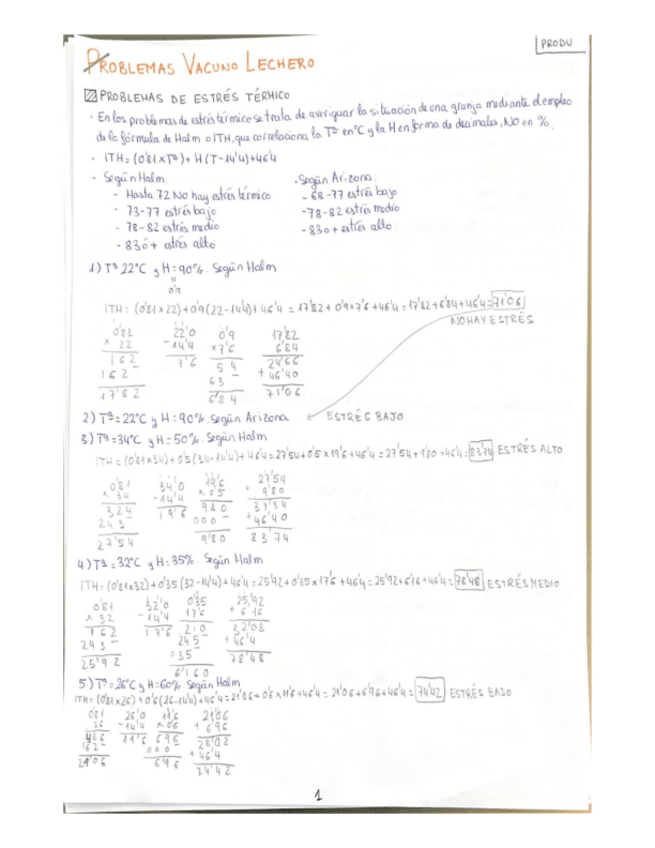 PRODU
PROBLEMAS VACUNO LECHERO
PROBLEMAS DE ESTRÉS TÉRMICO
· En los problemas de estrés térmico se trata de averiguar la situación de una granja mediante el empleo
de la fórmula de Halm o ITH, que correlaciona la Tª en ºC y la H en forma de decimales, NO en %.
· ITH = (0'81 x Tª) + H (T - 14'4) + 46'4
· Según Halm:
- Hasta 72 No hay estrés térmico
- 73-77 estrés bajo
- 78-82 estrés medio
- 83 ó + estrés alto
· Según Arizona:
- 68-77 estrés bajo
- 78-82 estrés medio
- 83 o + estrés alto
1) Tª 22ºC y H = 90%. Según Halm
"
0'9
ITH = (0'81 x 22) + 0'9 (22 - 14'4) + 46'4 = 17'82 + 0'9 x 7'6 + 46'4 = 17'82 + 6'84 + 46'4 = 71'06
NO HAY ESTRÉS
0'81 22'0 0'9 17'82
x 22 - 14'4 x 7'6 6'84
162 7'6 54 24'66
162 63 + 46'40
17'82 6'84 71'06
2) Tª = 22ºC y H = 90%. Según Arizona ESTRÉS BAJO
3) Tª = 34ºC y H = 50%. Según Halm
ITH = (0'81 x 34) + 0'5 (34 - 14'4) + 46'4 = 27'54 + 0'5 x 19'6 + 46'4 = 27'54 + 9'80 + 46'4 = 83'74 ESTRÉS ALTO
0'81 34'0 19'6 27'54
x 34 - 14'4 x 0'5 + 9'80
324 19'6 980 37'34
243 000 + 46'40
27'54 9'80 83'74
4) Tª = 32ºC y H = 35%. Según Halm
ITH = (0'81 x 32) + 0'35 (32 - 14'4) + 46'4 = 25'92 + 0'35 x 17'6 + 46'4 = 25'92 + 6'16 + 46'4 = 78'48 ESTRÉS MEDIO
0'81 32'0 0'35 25'92
x 32 - 14'4 17'6 + 6'16
162 17'6 210 32'08
243 245 + 46'4
25'92 035 78'48
6'160
5) Tª = 26ºC y H = 60% Según Halm
ITH = (0'81 x 26) + 0'6 (26 - 14'4) + 46'4 = 21'06 + 0'6 x 11'6 + 46'4 = 21'06 + 6'96 + 46'4 = 74'42 ESTRÉS BAJO
0'81 26'0 11'6 21'06
26 - 14'4 x 0'6 + 6'96
486 11'6 696 28'02
162 000 + 46'4
21'06 6'96 74'42
1